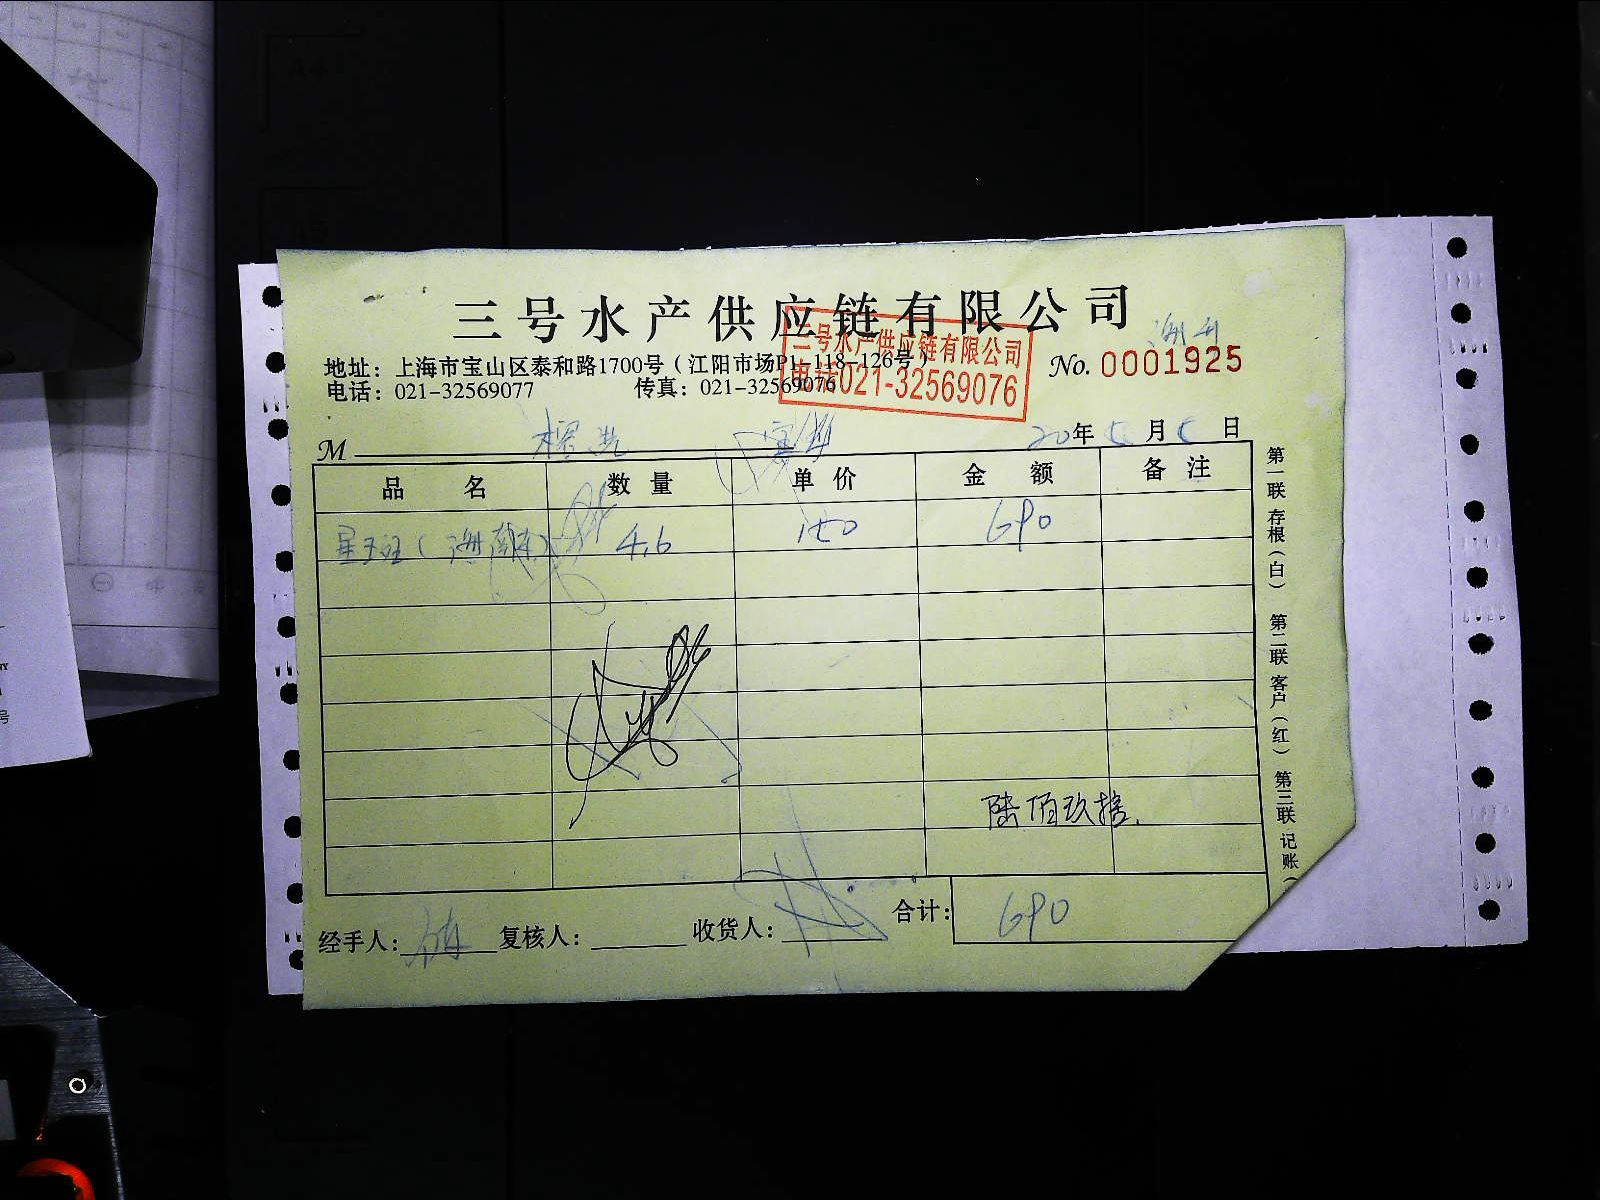 三号水产供应链有限公司
地址：上海市宝山区泰和路1700号（江阳市场P1-118-126号）
No. 0001925
电话：021-32569077 传真：021-32569076
三号水产供应链有限公司
电话021-32569076
M
20年5月6日
品名 数量 单价 金额 备注
星斑（海南） 4.6 150 690
陆佰玖拾.
合计： 690
经手人： 复核人： 收货人：
第一联 存根（白） 第二联 客户（红） 第三联 记账（